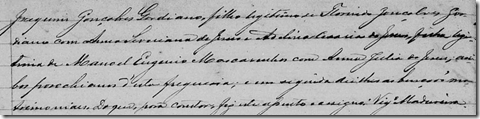 Joaquim Gonçalves Gordiano, filho legitimo de Florindo Gonçalves Gor
diano com Anna de Jesus e Avelina Maria de Jesus, filha legi
tima de Manoel Eugenio Mascarenhas com Anna Julia de Jesus, am
bos parochianos desta freguesia, e em seguida dei lhes as bençãos ma
trimoniaes. Do que, para constar, fiz este assento e assignei. Vigº Madureira